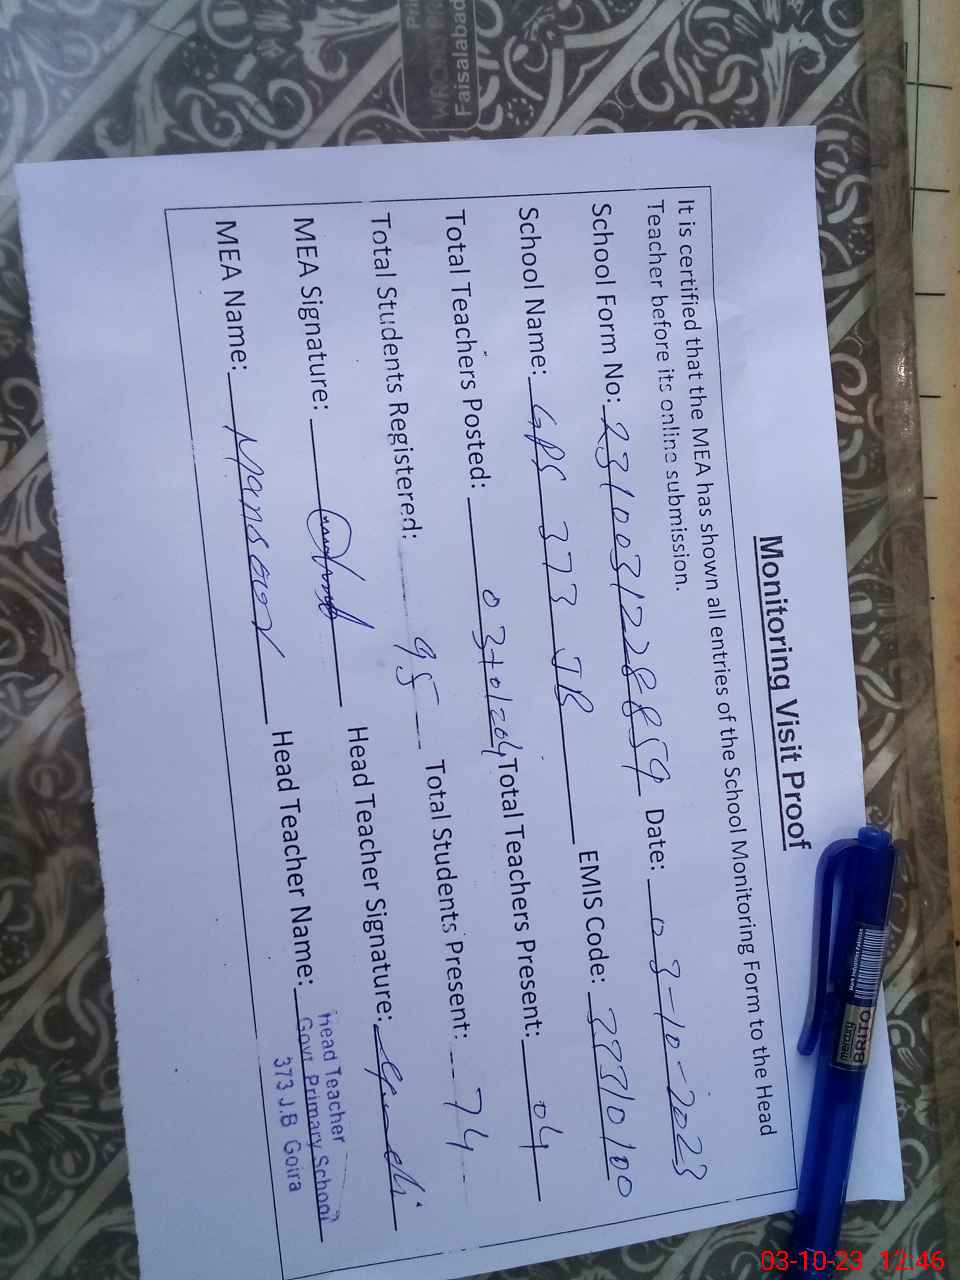 Monitoring Visit Proof
It is certified that the MEA has shown all entries of the School Monitoring Form to the Head
Teacher before its online submission.
School Form No: 2310031228859 Date: 03-10-2023
School Name: GPS 373 JB EMIS Code: 33310100
Total Teachers Posted: 03+01=04 Total Teachers Present: 04
Total Students Registered: 95 Total Students Present: 74
MEA Signature: Head Teacher Signature:
MEA Name: Mansoor Head Teacher Name:
Head Teacher
Govt Primary School
373 J.B Gojra
BRITO
mercury
Faisalabad
03-10-23 12:46